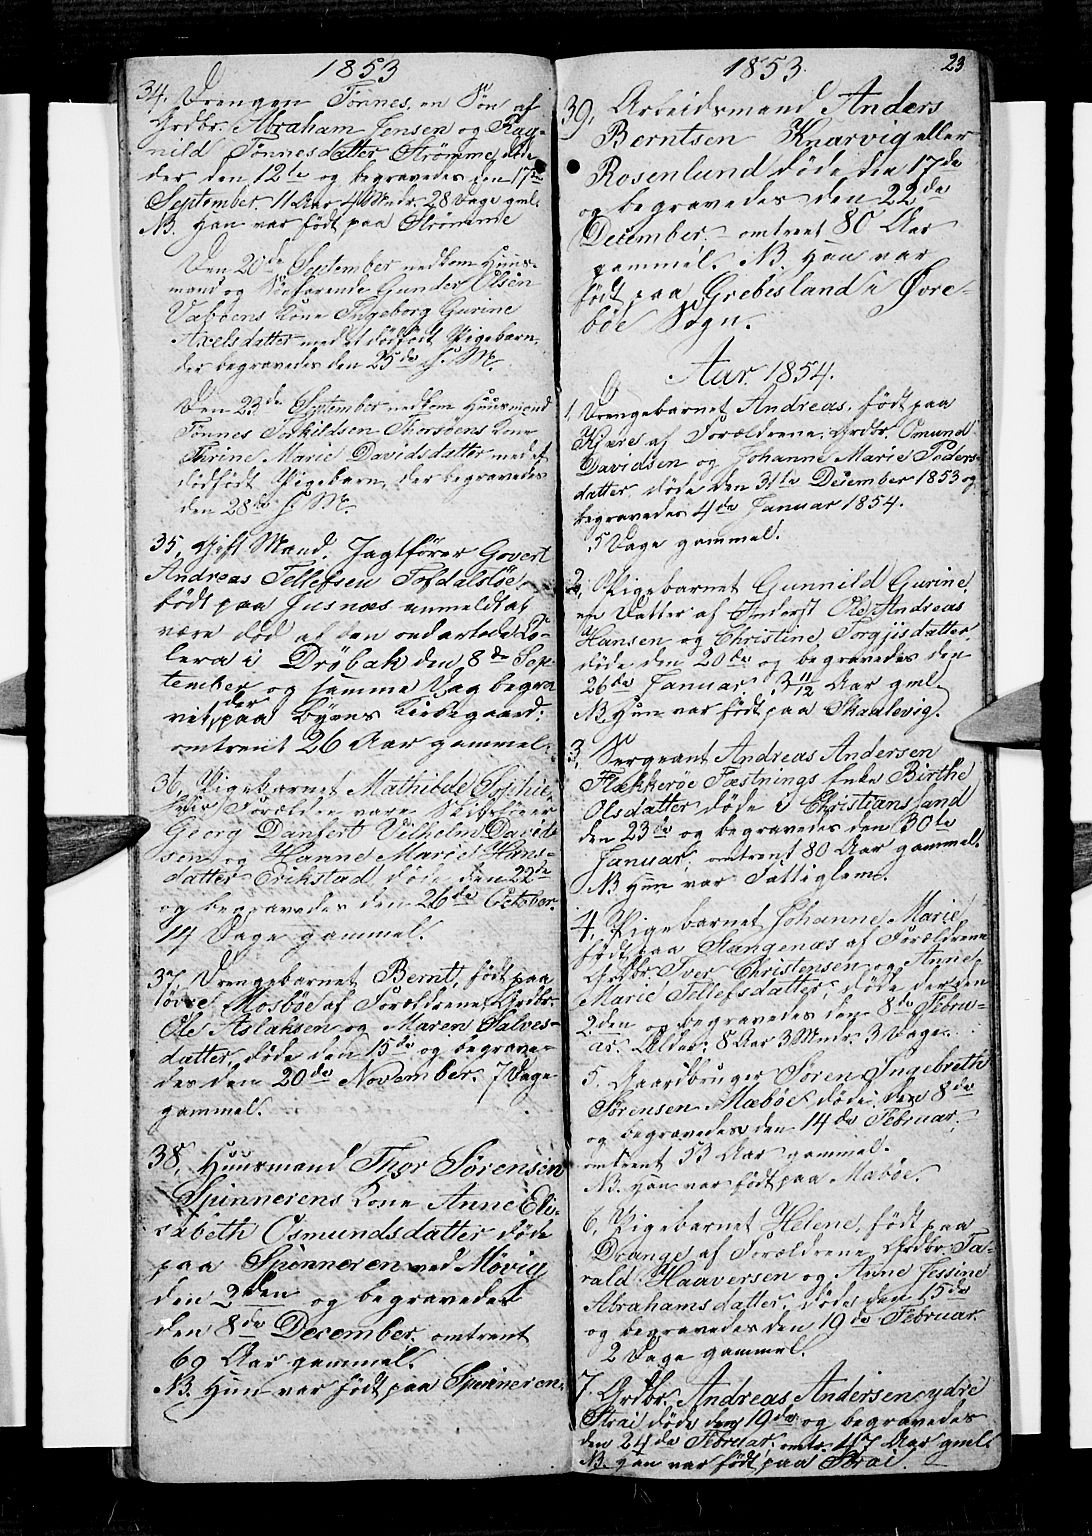 1853
34. Drengen Tönnes, en Søn af
Grdbr. Abraham Jensen og Rag-
nild Tönnesdatter Strømme, dø-
de den 12te og begravedes den 17de
September. 11 Aar 4 Mndr. 28 Dage gml.
NB. Han var født paa Strømme
Den 20de September nedkom Huus-
mand og Søefarende Gunder Olsen
Vaböens Kone Ingeborg Gurine
Axelsdatter med et dödfödt Pigebarn,
der begravedes den 25de s. M.
Den 23de September nedkom Huusmand
Tönnes Terkildsen Thorsöens Kone
Thrine Marie Davidsdatter med et
dödfödt Pigebarn, der begravedes
den 28de s. M.
35, Gift Mand. Jagtfører Govert
Andreas Tellefsen Tofdalsløe,
födt paa Jusnæs anmeldt at
være död af den ondartede Co-
lera i Drøbak den 8de Sep-
tember og samme Dag begra-
vet der paa Byens Kirkegaard:
omtrent 26 Aar gammel.
36, Pigebarnet Mathilde Sophie,
hvis Forældre vare Skibsfører
Georg Danfert Vilhelm David-
sen og Hanne Marie Hans-
datter Erikstad, døde den 22de
og begravedes den 26de October.
14 Dage gammel.
37, Drengebarnet Bernt, født paa
Øvre Mosbøe af Forældrene Grdbr.
Ole Aslaksen og Maren Salves-
datter, døde den 15de og begrave-
des den 20de November. 7 Dage
gammel.
38, Huusmand Thor Sørensen
Spinnerens Kone Anne Eli-
sabeth Osmundsdatter døde
paa Spinneren ved Møvig
den 2den og begravedes
den 8de December, omtrent
69 Aar gammel.
NB. Hun var født paa Spinneren.
1853.
23
39, Arbeidsmand Anders
Berntsen Knarvig eller
Rosenlund døde den 17de
og begravedes den 22de
December, omtrent 80 Aar
gammel. NB. Han var
født paa Grebesland i Øvre-
bøe Sogn.
Aar 1854.
1, Drengebarnet Andreas, født paa
Kjære af Forældrene, Grdbr. Omund
Davidsen og Johanne Marie Peders-
datter, døde den 31te December 1853 og
begravedes 4de Januar 1854.
5 Dage gammel.
2, Pigebarnet Gunnild Gurine,
en Datter af Inderst Ole Andreas
Hansen og Christine Torgjisdatter,
døde den 20de og begravedes den
26de Januar. 3 11/12 Aar gml.
NB. Hun var født paa Skaalevig.
3, Sergeant Andreas Andersen
Flækkerøe Fæstnings Enke Birthe
Olsdatter døde i Christianssand
den 23de og begravedes den 30te
Januar, omtrent 80 Aar gammel.
NB. Hun var Fattiglem.
4, Pigebarnet Johanne Marie,
født paa Stangenæs af Forældrene
Grdbr. Iver Christensen og Anne
Marie Tellefsdatter, døde der den
2den og begravedes den 8de Febru-
ar. Alder: 8 Aar 3 Mndr. 3 Dage.
5. Gaardbruger Søren Ingebreth
Sørensen Mæbøe, døde den 8de
og begravedes den 14de Februar,
omtrent 53 Aar gammel.
NB. Han var født paa Mæbøe.
6, Pigebarnet Helene, født paa
Drange af Forældrene Grdbr. Ta-
rald Haaversen og Anne Jessine
Abrahamsdatter, døde den 15de
og begravedes den 19de Februar.
2 Dage gammel.
7. Grdbr. Andreas Andersen ydre
Strai døde den 19de og begravedes
den 24de Februar, omtr. 47 Aar gml.
NB. Han var født paa Strai.